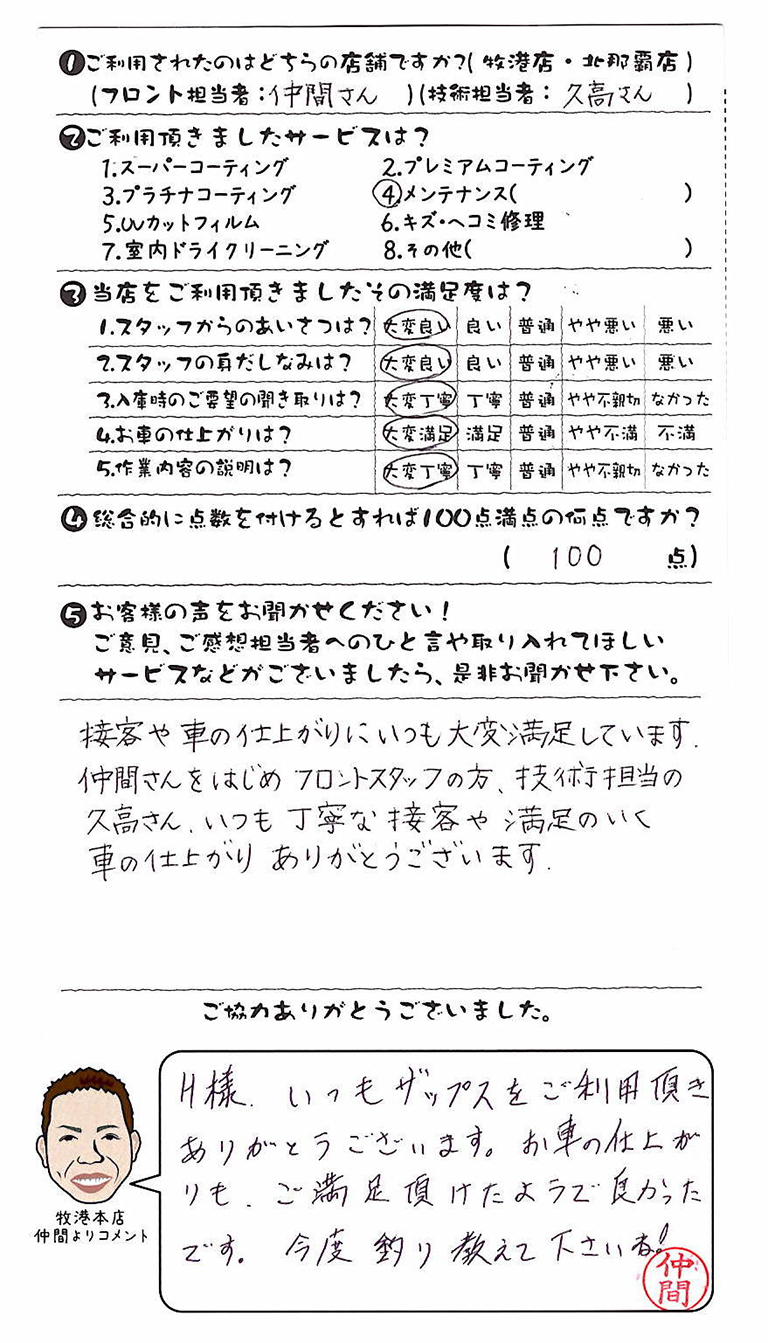 ❶ご利用されたのはどちらの店舗ですか?(牧港店・北那覇店)
(フロント担当者:仲間さん)(技術担当者:久高さん)
❷ご利用頂きましたサービスは?
1.スーパーコーティング 2.プレミアムコーティング
3.プラチナコーティング ④メンテナンス( )
5.UVカットフィルム 6.キズ・ヘコミ修理
7.室内ドライクリーニング 8.その他( )
❸当店をご利用頂きましたその満足度は?
1.スタッフからのあいさつは? 大変良い 良い 普通 やや悪い 悪い
2.スタッフの身だしなみは? 大変良い 良い 普通 やや悪い 悪い
3.入庫時のご要望の聞き取りは? 大変丁寧 丁寧 普通 やや不親切 なかった
4.お車の仕上がりは? 大変満足 満足 普通 やや不満 不満
5.作業内容の説明は? 大変丁寧 丁寧 普通 やや不親切 なかった
❹総合的に点数を付けるとすれば100点満点の何点ですか?
( 100 点)
❺お客様の声をお聞かせください!
ご意見、ご感想担当者へのひと言や取り入れてほしい
サービスなどがございましたら、是非お聞かせ下さい。
接客や車の仕上がりにいつも大変満足しています.
仲間さんをはじめフロントスタッフの方、技術担当の
久高さん、いつも丁寧な接客や満足のいく
車の仕上がりありがとうございます.
ご協力ありがとうございました。
H様.いつもザップスをご利用頂き
ありがとうございます。お車の仕上が
りも、ご満足頂けたようで良かった
です。今度釣り教えて下さいね!
仲間
牧港本店
仲間よりコメント